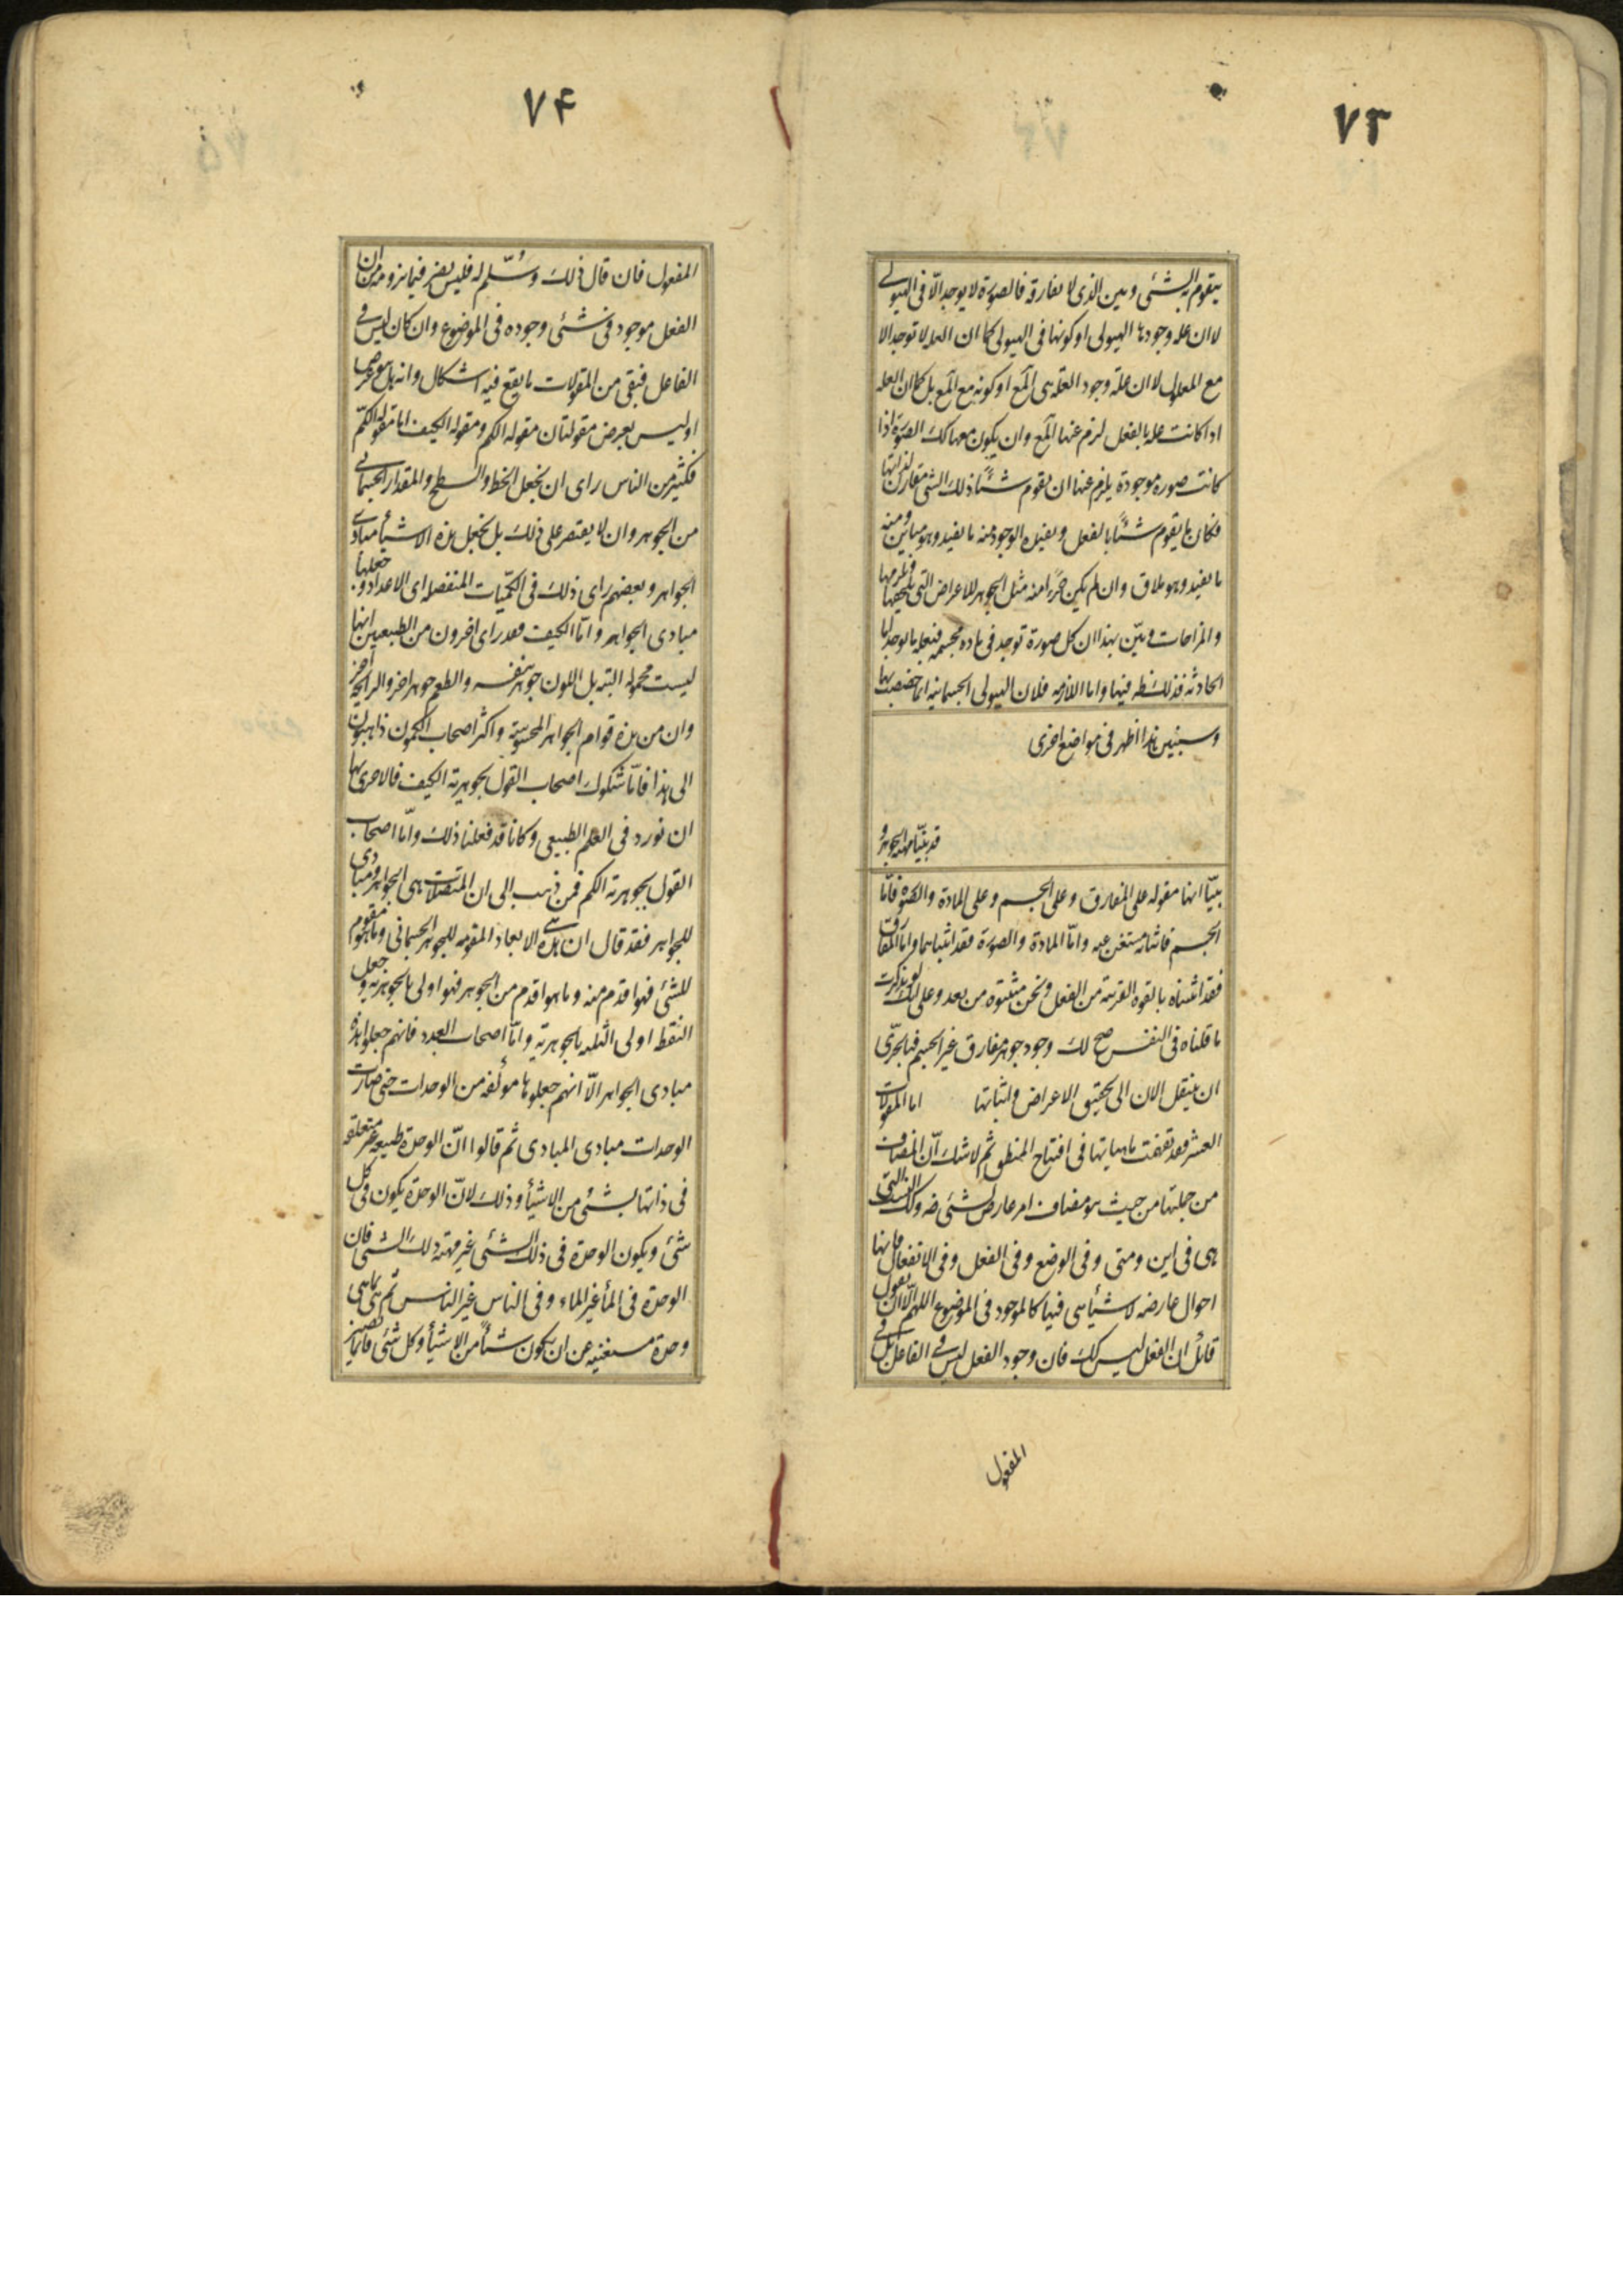 ٧٣
يتقوم به الشئى وبين الذى لا يفارقه فالصورة لا يوجد الّا فى الهيولى
لا ان علة وجودها الهيولى او كونها فى الهيولى كما ان العله لا توجد الا
مع المعلول لا ان علة وجود العلة هى المع او كونه مع المع بل كما ان العله
اذا كانت علة بالفعل لزم عنها المع وان يكون معها كك الصورة اذا
كانت صورة موجودة يلزم عنها ان يقوم شئًا ذلك الشى مقارن لذاتها
فكان ما يقوم شئًا بالفعل ويفيده الوجود منه ما يفيد وهو مباين ومنه
ما يفيد وهو ملاق وان لم يكن جزءا منه مثل الجوهر للاعراض التى يلحقها ويلزمها
والمزاجات وبيّن بهذا ان كل صورة توجد فى ماده مجسمه فبعلة ما توجد اما
الحادثه فذلك ظ فيها واما اللازمه فلان الهيولى الجسمانيه انما خصصت بها
وسنبين هذا اظهر فى مواضع اخرى
قد بيّنا مهية الجوهر و
بيّنا انها مقوله على المفارق وعلى الجسم وعلى المادة والصورة فامّا
الجسم فاثباته مستغن عنه وامّا المادة والصورة فقد اثبتناهما وامّا المفارق
فقد اثبتناه بالقوه القريبة من الفعل ونحن مثبتوه من بعد وعلى انك لو تذكرت
ما قلناه فى النفس صح لك وجود جوهر مفارق غير الجسم فبالحرّى
ان ننتقل الان الى تحقيق الاعراض واثباتها اما المقولات
العشر فقد تفهمت ماهياتها فى افتتاح المنطق ثم لا شك انّ المضاف
من جملتها من حيث هو مضاف امر عارض لشئى ضه وكك النسب التى
هى فى اين ومتى وفى الوضع وفى الفعل وفى الانفعال فانها
احوال عارضه لاشيأ هى فيها كالموجود فى الموضوع اللهم الّا ان يقول
قائل ان الفعل ليس كك فان وجود الفعل ليس فى الفاعل بل فى
المفعول
٧۴
المفعول فان قال ذلك وسُلّم له فليس يضر فيما نرومه من ان
الفعل موجود فى شئى وجوده فى الموضوع وان كان ليس فى
الفاعل فبقى من المقولات ما يقع فيه اشكال وانه هل هو عرض
او ليس بعرض مقولتان مقوله الكم ومقوله الكيف اما مقوله الكمّ
فكثير من الناس راى ان يجعل الخط والسطح والمقدار الجسمانى
من الجوهر وان لا يقتصر على ذلك بل يجعل هذه الاشيأ مبادى
الجواهر وبعضهم راى ذلك فى الكمّيات المنفصله اى الاعداد وجعلها
مبادى الجواهر وامّا الكيف فقد راى اخرون من الطبيعيين انها
ليست محموله البته بل اللون جوهر بنفسه والطعم جوهر اخر والرايحة اخر
وان من هذه قوام الجواهر المحسوسة واكثر اصحاب الكمون ذاهبون
الى هذا فامّا شكوك اصحاب القول بجوهرية الكيف فالاحرى بها
ان نورد فى العلم الطبيعى وكانا قد فعلنا ذلك وامّا اصحاب
القول بجوهرية الكم فمن ذهب الى ان المتصلات هى الجواهر ومبادى
للجواهر فقد قال ان هذه هى الابعاد المقومه للجوهر الجسمانى وما هو مقوم
للشئى فهو اقدم منه وما هو اقدم من الجوهر فهو اولى بالجوهرية وجعل
النقط اولى الثلثه بالجوهرية وامّا اصحاب العدد فانهم جعلوا هذه
مبادى الجواهر الّا انهم جعلوها مؤلفه من الوحدات حتى صارت
الوحدات مبادى المبادى ثم قالوا انّ الوحدة طبيعه غير متعلقه
فى ذاتها بشئى من الاشيأ وذلك لانّ الوحدة يكون فى كل
شئى ويكون الوحدة فى ذلك الشئى غير مهية ذلك الشئى فان
الوحدة فى المأ غير الماء وفى الناس غير الناس ثم هى بما هى
وحدة مستغنيه عن ان يكون شيئاً من الاشيأ وكل شئى فانما يصير